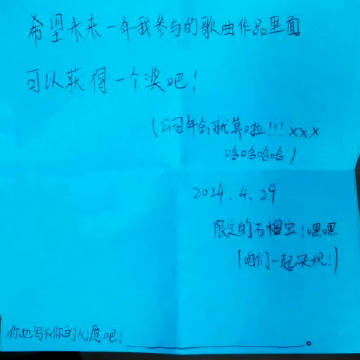 希望未来一年我参与的歌曲作品里面
可以获得一个奖吧！
(公司年会就算啦!!!xxx
哈哈哈哈)
2024.4.29
限定的 ！嘿嘿
(咱们一起 !)
你也写下你的心愿吧！